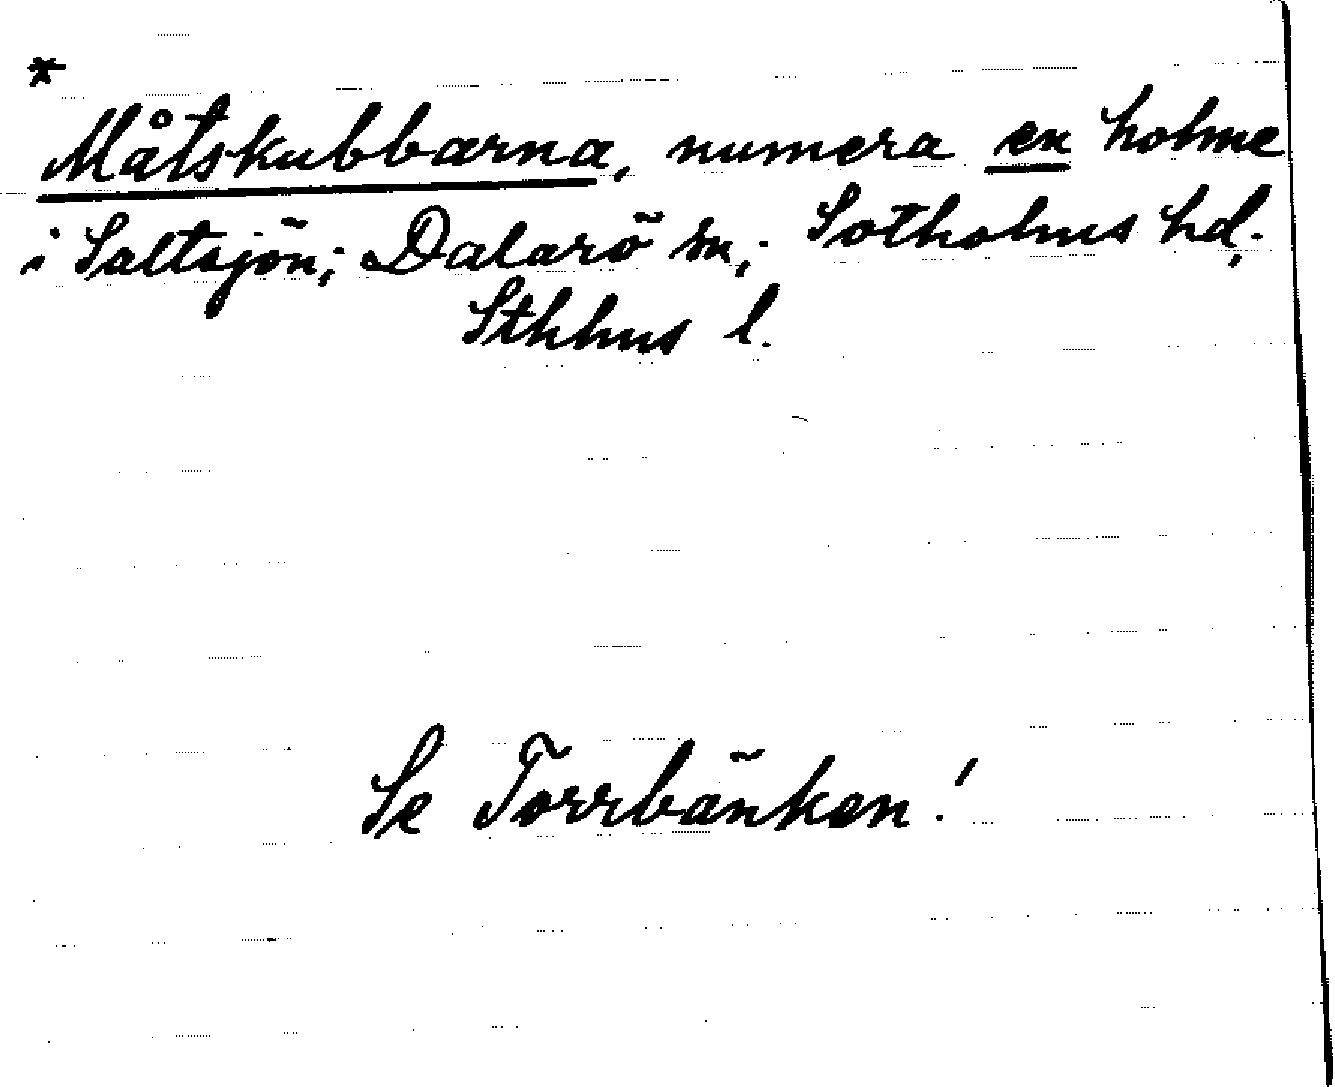 *
Måtskubbarna, numera en holme
i Saltsjön; Dalarö sn, Sotholms hd,
Sthlms l.
Se Torrbänken!